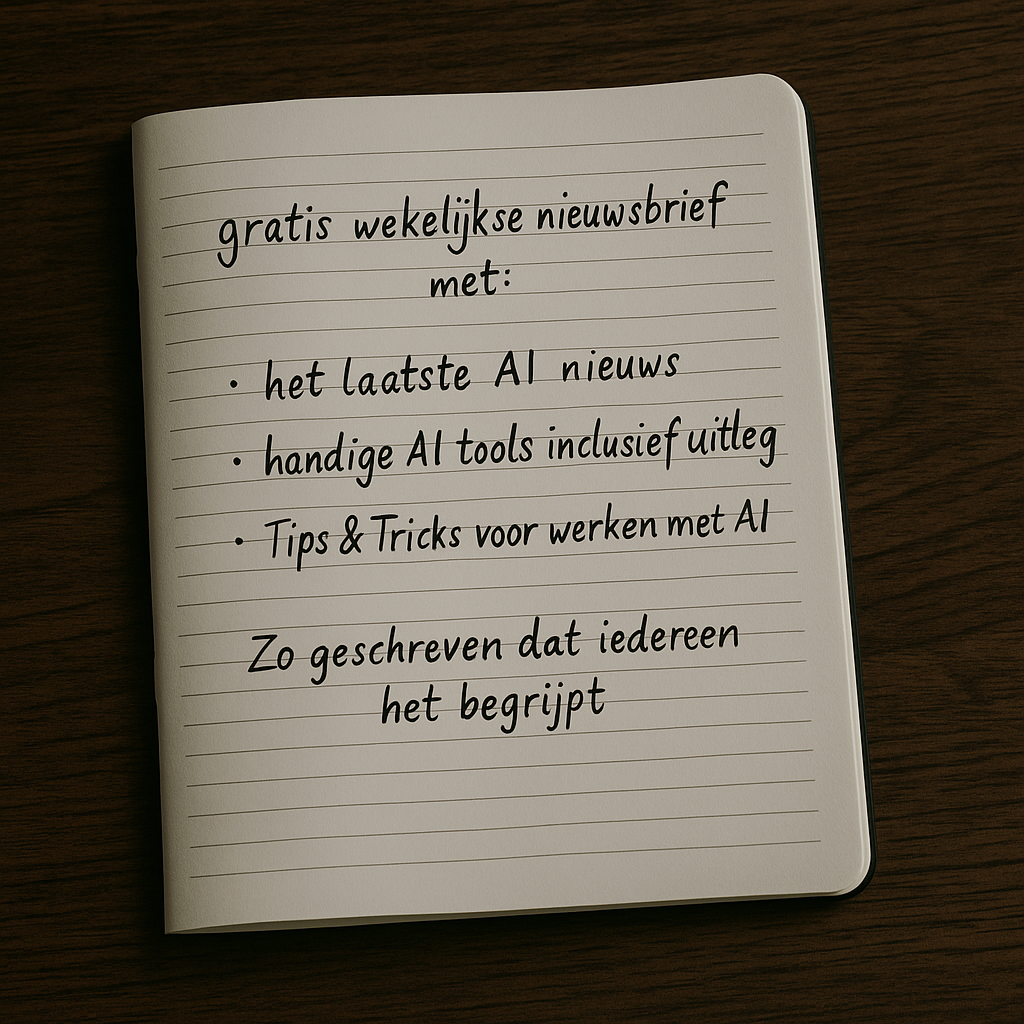 gratis wekelijkse nieuwsbrief
met:
• het laatste AI nieuws
• handige AI tools inclusief uitleg
• Tips & Tricks voor werken met AI
Zo geschreven dat iedereen
het begrijpt